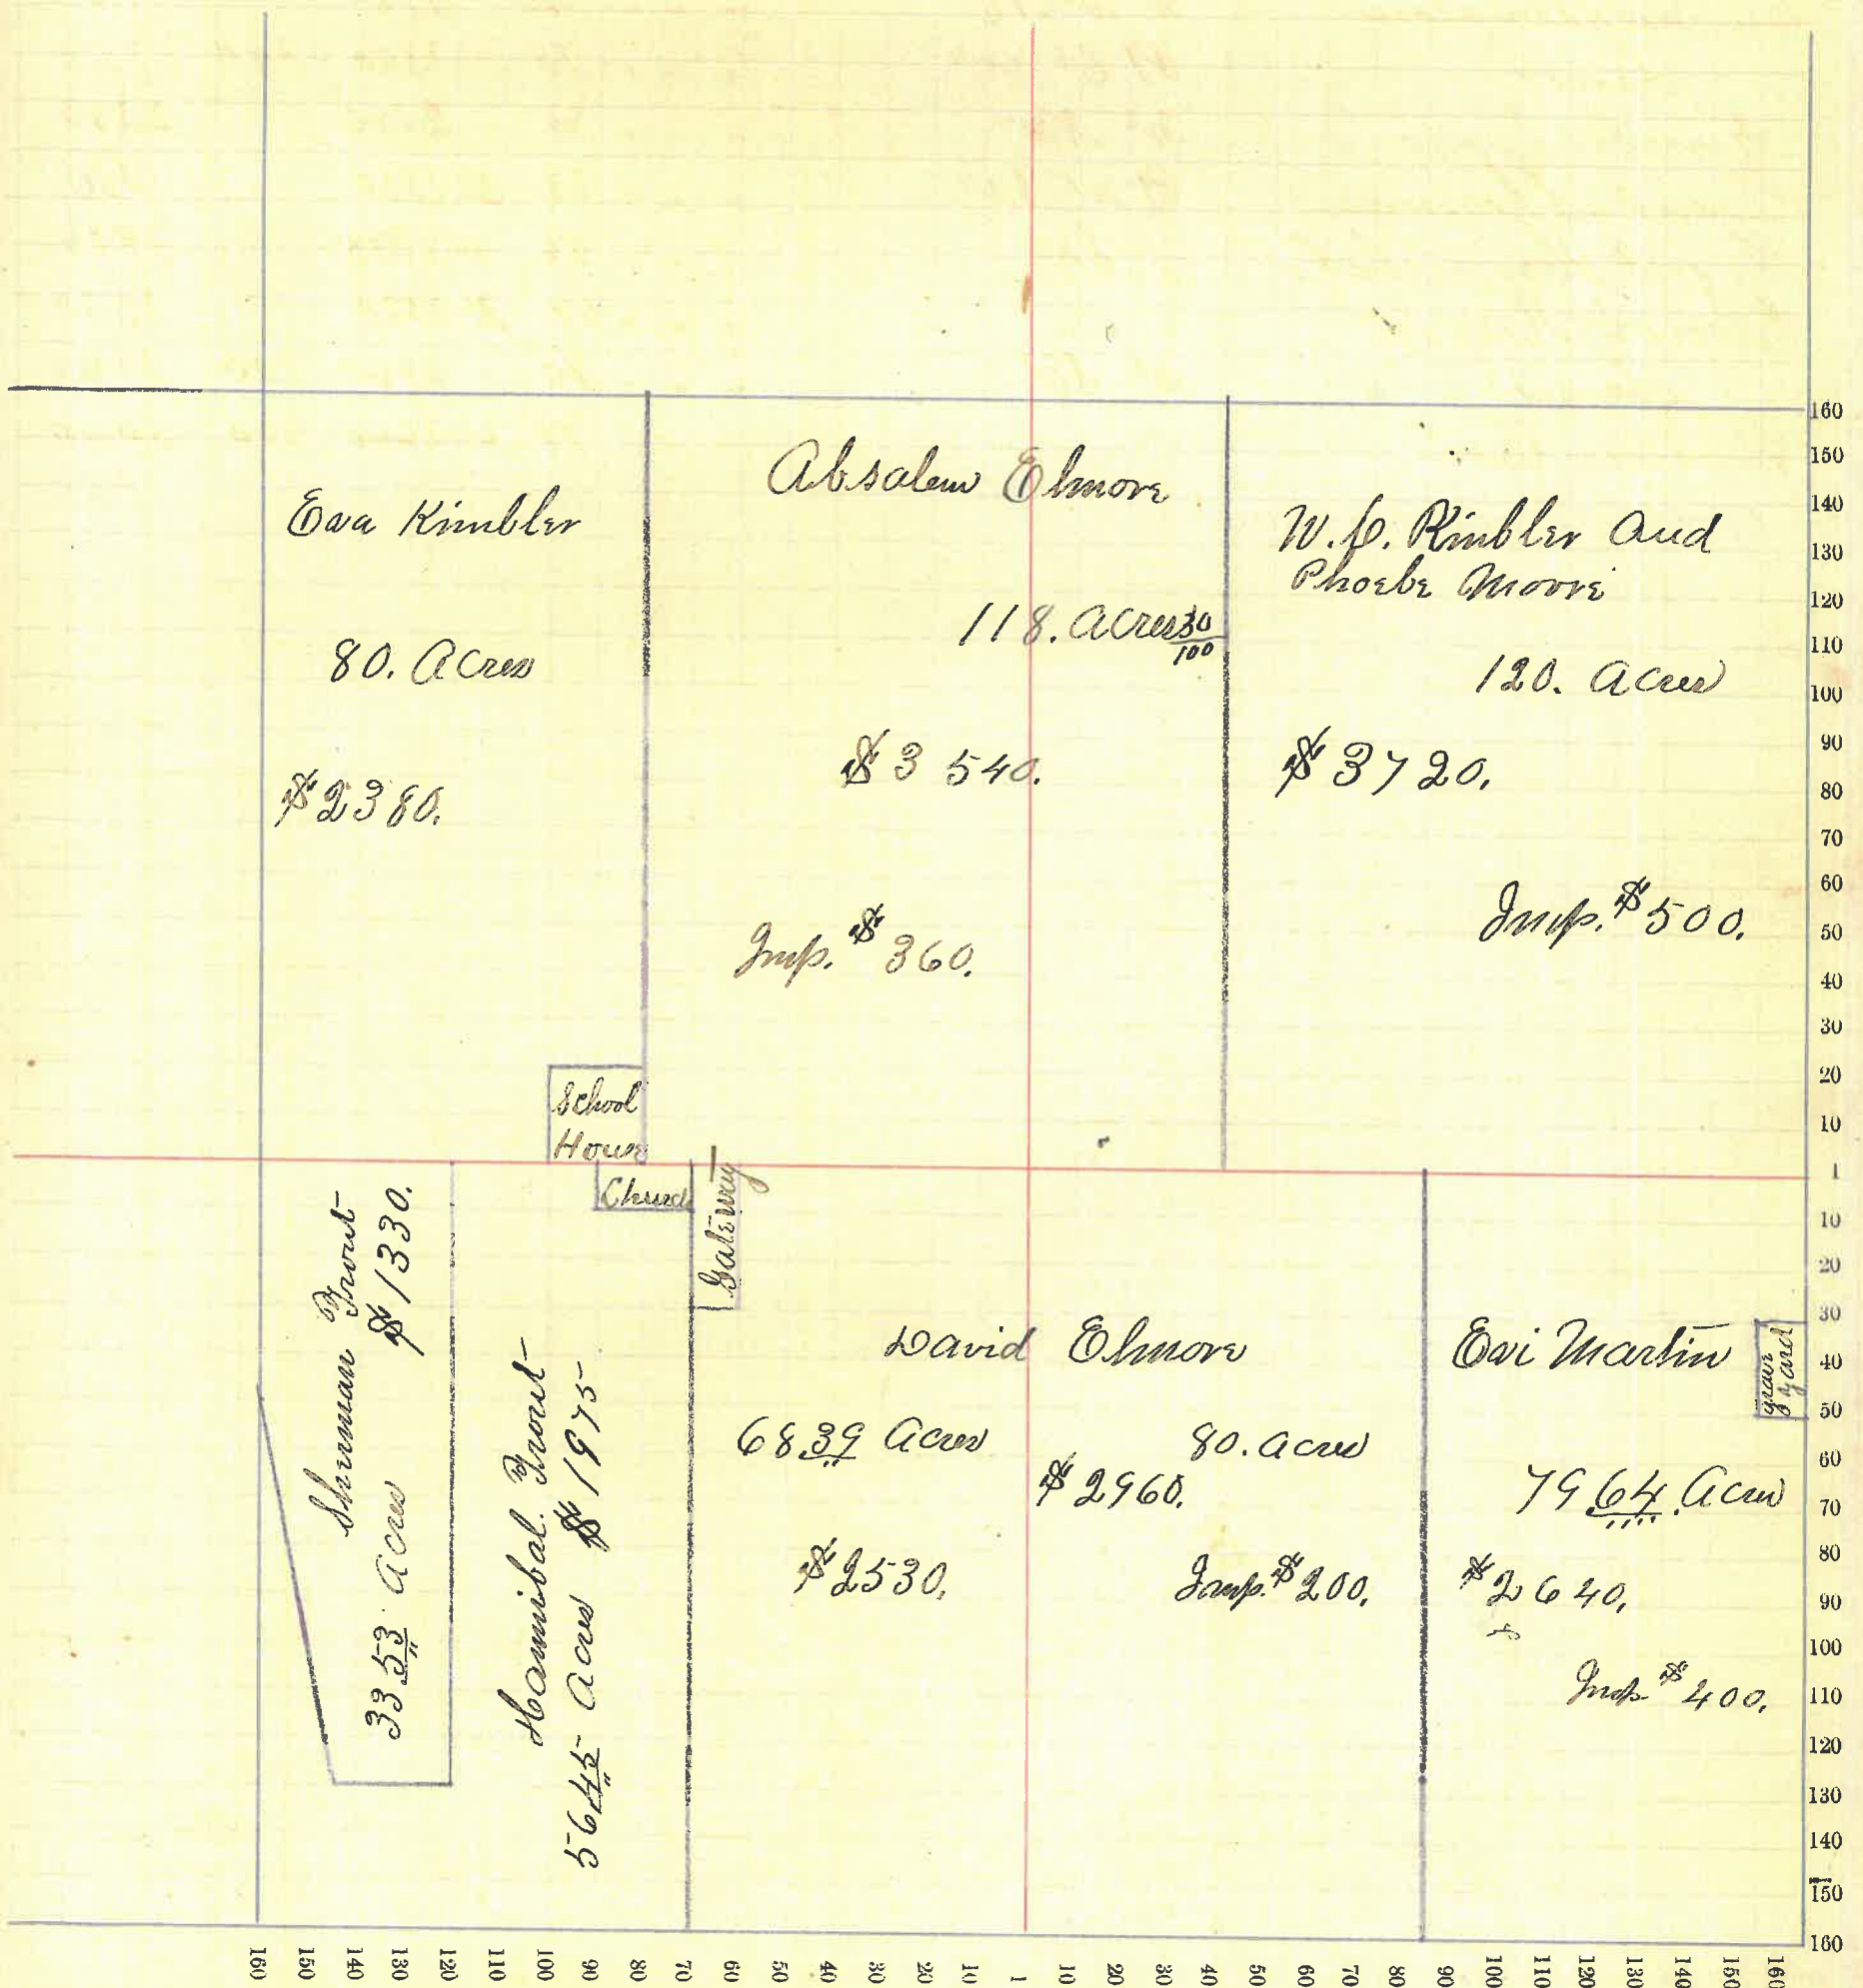 Eva Kimbler
80. Acres
$2380.
Absalem Elmore
118. Acres 30/100
$3540.
Imp. $360.
W. C. Kimbler and
Phoebe Moore
120. Acres
$3720.
Imp. $500.
School
House
Church
Gateway
Sherman Trout
$1330.
33 53 Acres
Hannibal. Trout
$1975
56 45 Acres
David Elmore
68 39 Acres
$2530.
80. Acres
$2960.
Imp. $200.
Evi Martin
grave
yard
79 64 Acres
$2640.
Imp. $400.
160
150
140
130
120
110
100
90
80
70
60
50
40
30
20
10
1
10
20
30
40
50
60
70
80
90
100
110
120
130
140
150
160
160 150 140 130 120 110 100 90 80 70 60 50 40 30 20 10 1 10 20 30 40 50 60 70 80 90 100 110 120 130 140 150 160